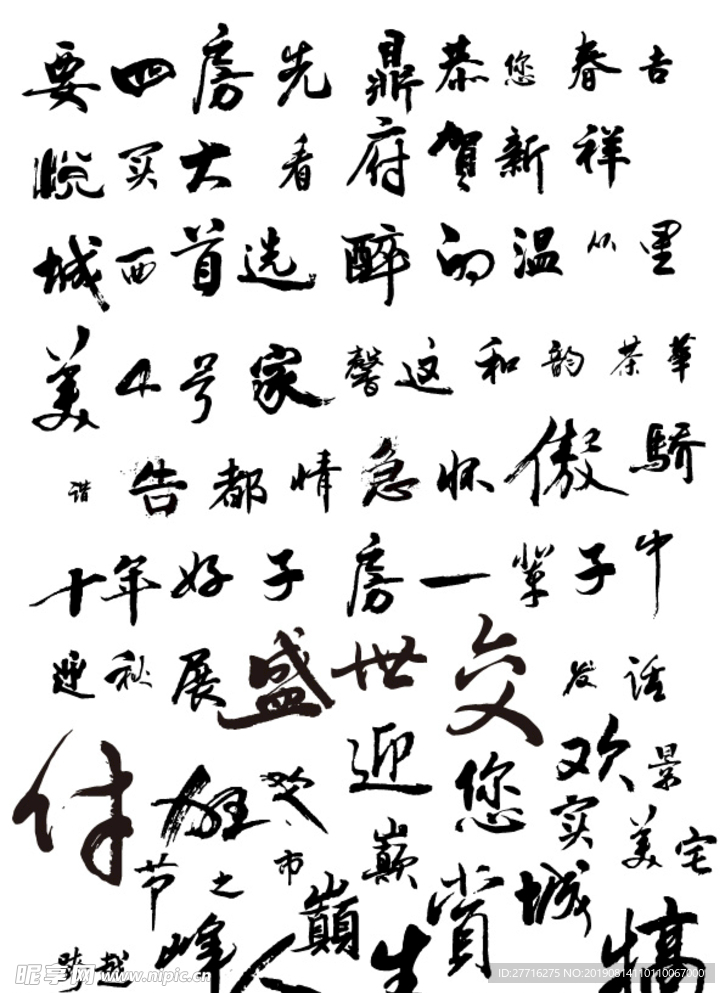 要四房先鼎恭您春吉
悦买大看府贺新祥
城西首选醉的温从里
美4号家馨这和韵茶华
谐告都情急怀傲骄
十年好子房一辈子中
迎秋展盛世交发话
付狂欢迎您欢景
实美宅
节之市巅赏城
峰人巅生犒
昵享网 www.nipic.cn
ID:27716275 NO:20190814110110067000